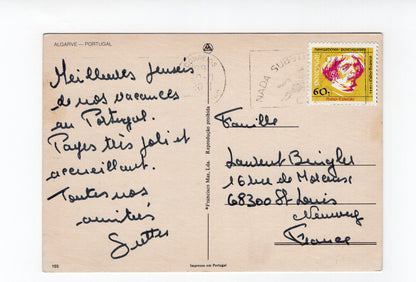 ALGARVE — PORTUGAL
Meilleures pensées
de nos vacances
au Portugal.
Pays très joli et
accueillant.
Toutes nos
amitiés
Sutter
105
"Francisco Mas, Lda. Reprodução proibida
Impresso em Portugal
NADA SUBSTI
60$
Famille
Laurent
16 rue de
68300 St Louis
Neuweg
France